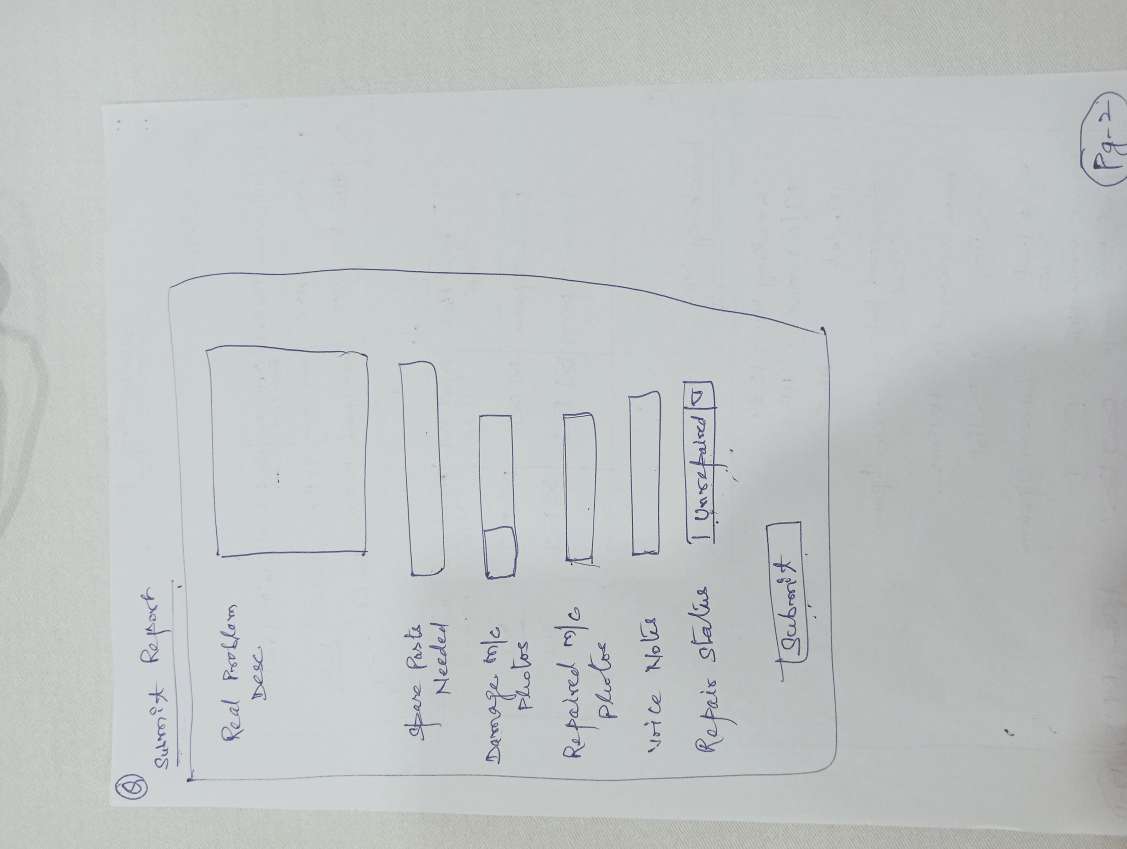 Q
Submit Report
Real Problem
Desc
Spare Parts
Needed
Damage m/c
Photos
Repaired m/c
Photos
Voice Notes
Repair Status
Unrepaired
Submit
Pg-2